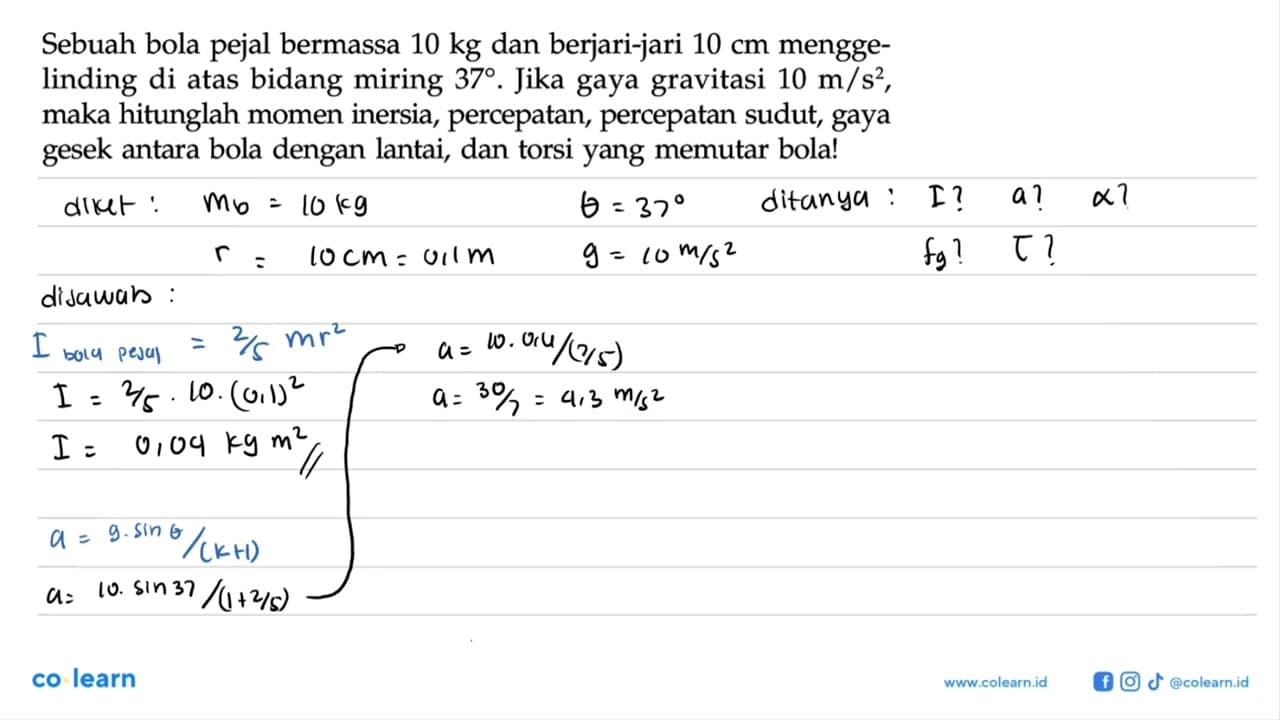 Sebuah bola pejal bermassa 10 kg dan berjari-jari 10 cm mengge-
linding di atas bidang miring 37°. Jika gaya gravitasi 10 m/s²,
maka hitunglah momen inersia, percepatan, percepatan sudut, gaya
gesek antara bola dengan lantai, dan torsi yang memutar bola!
diket : mb = 10 kg θ = 37° ditanya : I? a? α?
r = 10 cm = 0,1 m g = 10 m/s² fg? τ?
dijawab :
I bola pejal = 2/5 mr²
I = 2/5 . 10. (0,1)²
I = 0,04 kg m² //
a = g. sin θ/(k+1)
a= 10. sin 37/(1+2/5)
a = 10. 0,6/(7/5)
a = 30/7 = 4,3 m/s²
co learn
www.colearn.id @colearn.id